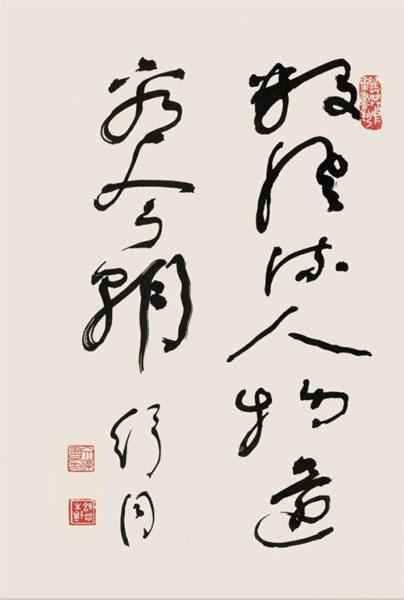 数风流人物还
看今朝
舒同